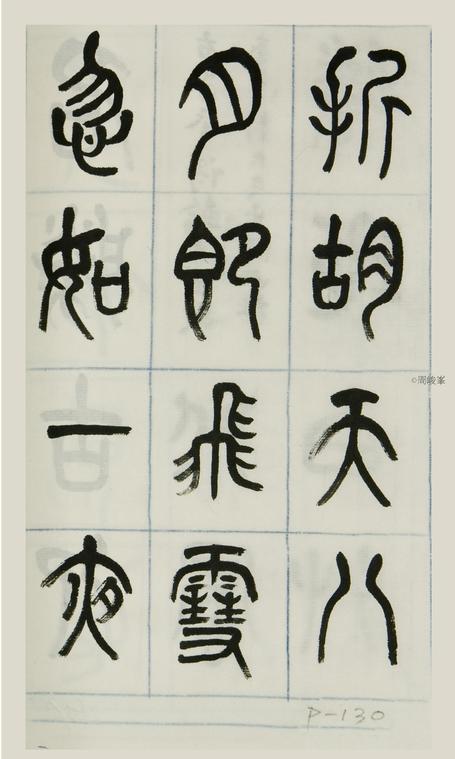 折胡天八
月即飛雪
忽如一夜
P-130
©周峻峯